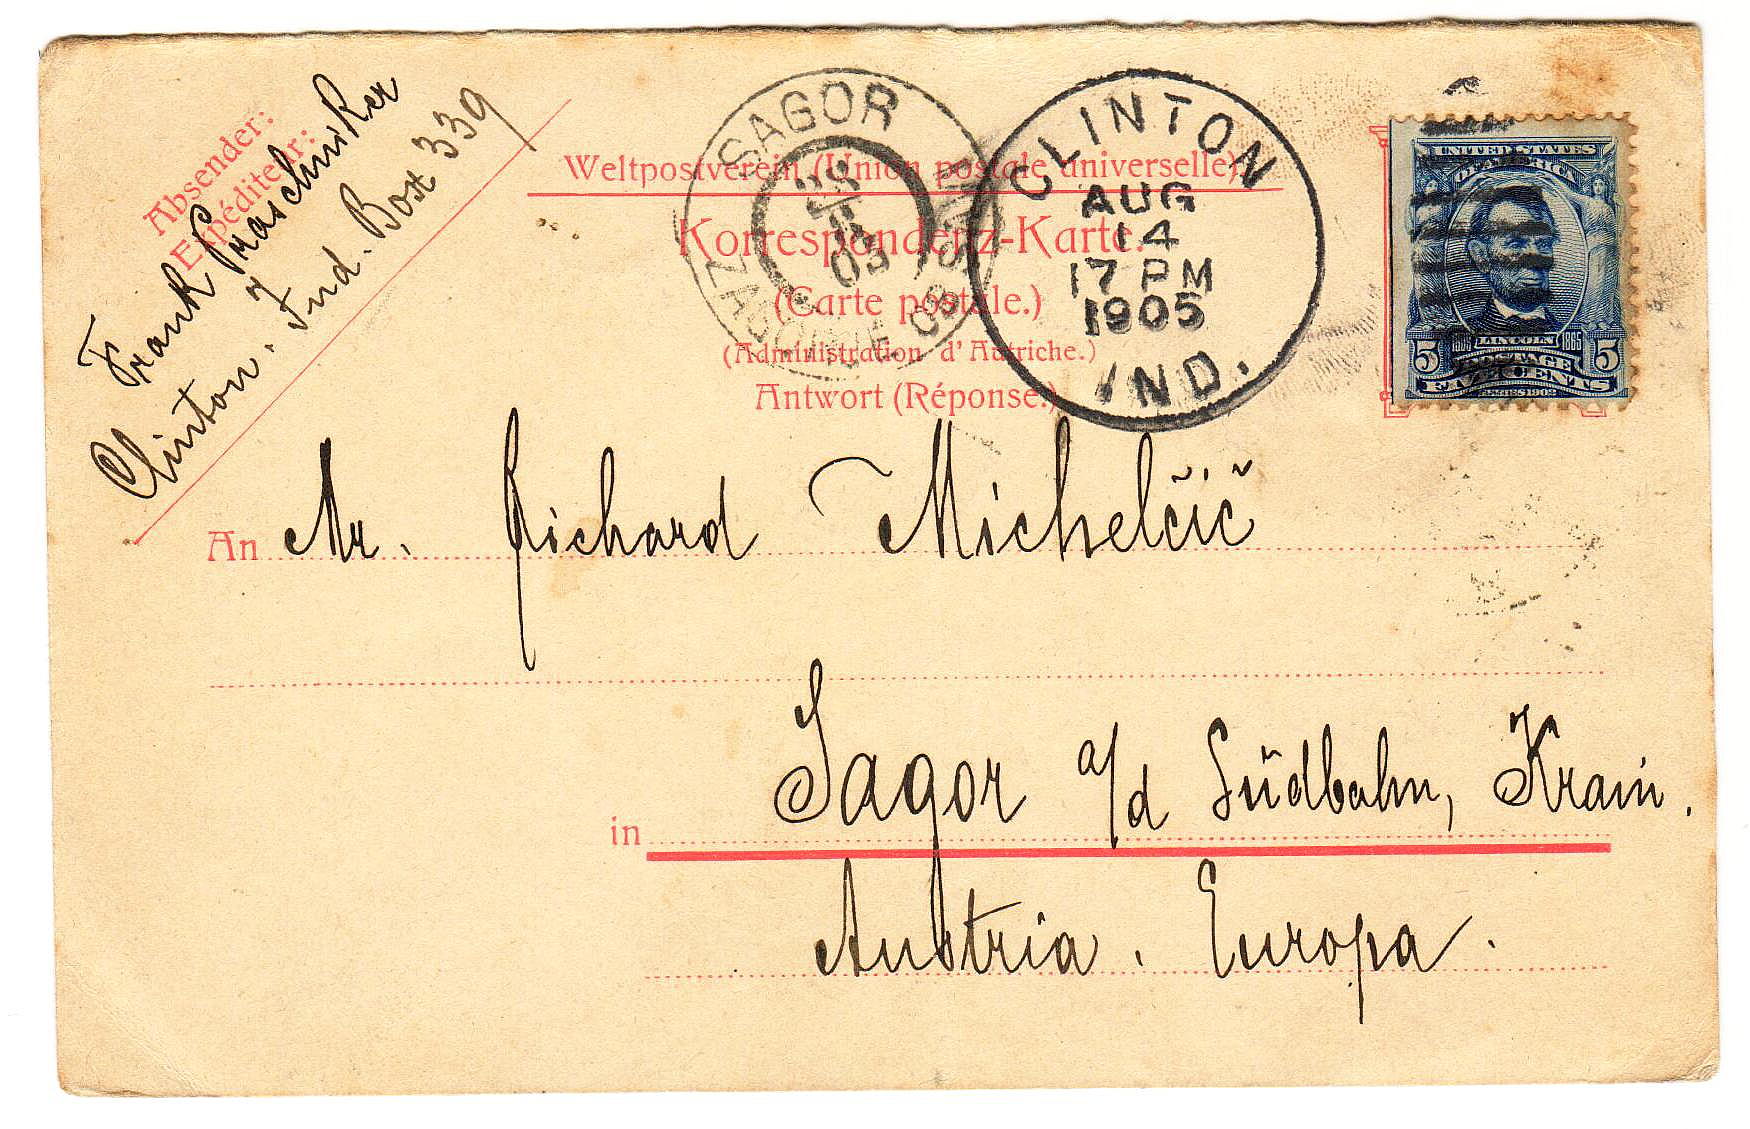 Absender:
Expéditeur:
Frank Praschniker
Clinton. Ind. Box 339
SAGOR
ZAGORJE OB SAVI
CLINTON
AUG
14
17 PM
1905
IND.
UNITED STATES
OF AMERICA
1809 LINCOLN 1865
5 POSTAGE 5
FIVE CENTS
SERIES 1902
Weltpostverein (Union postale universelle).
Korrespondenz-Karte.
(Carte postale.)
(Administration d'Autriche.)
Antwort (Réponse.)
An Mr. Richard Michelčič
in Sagor a/d Südbahn, Krain.
Austria. Europa.